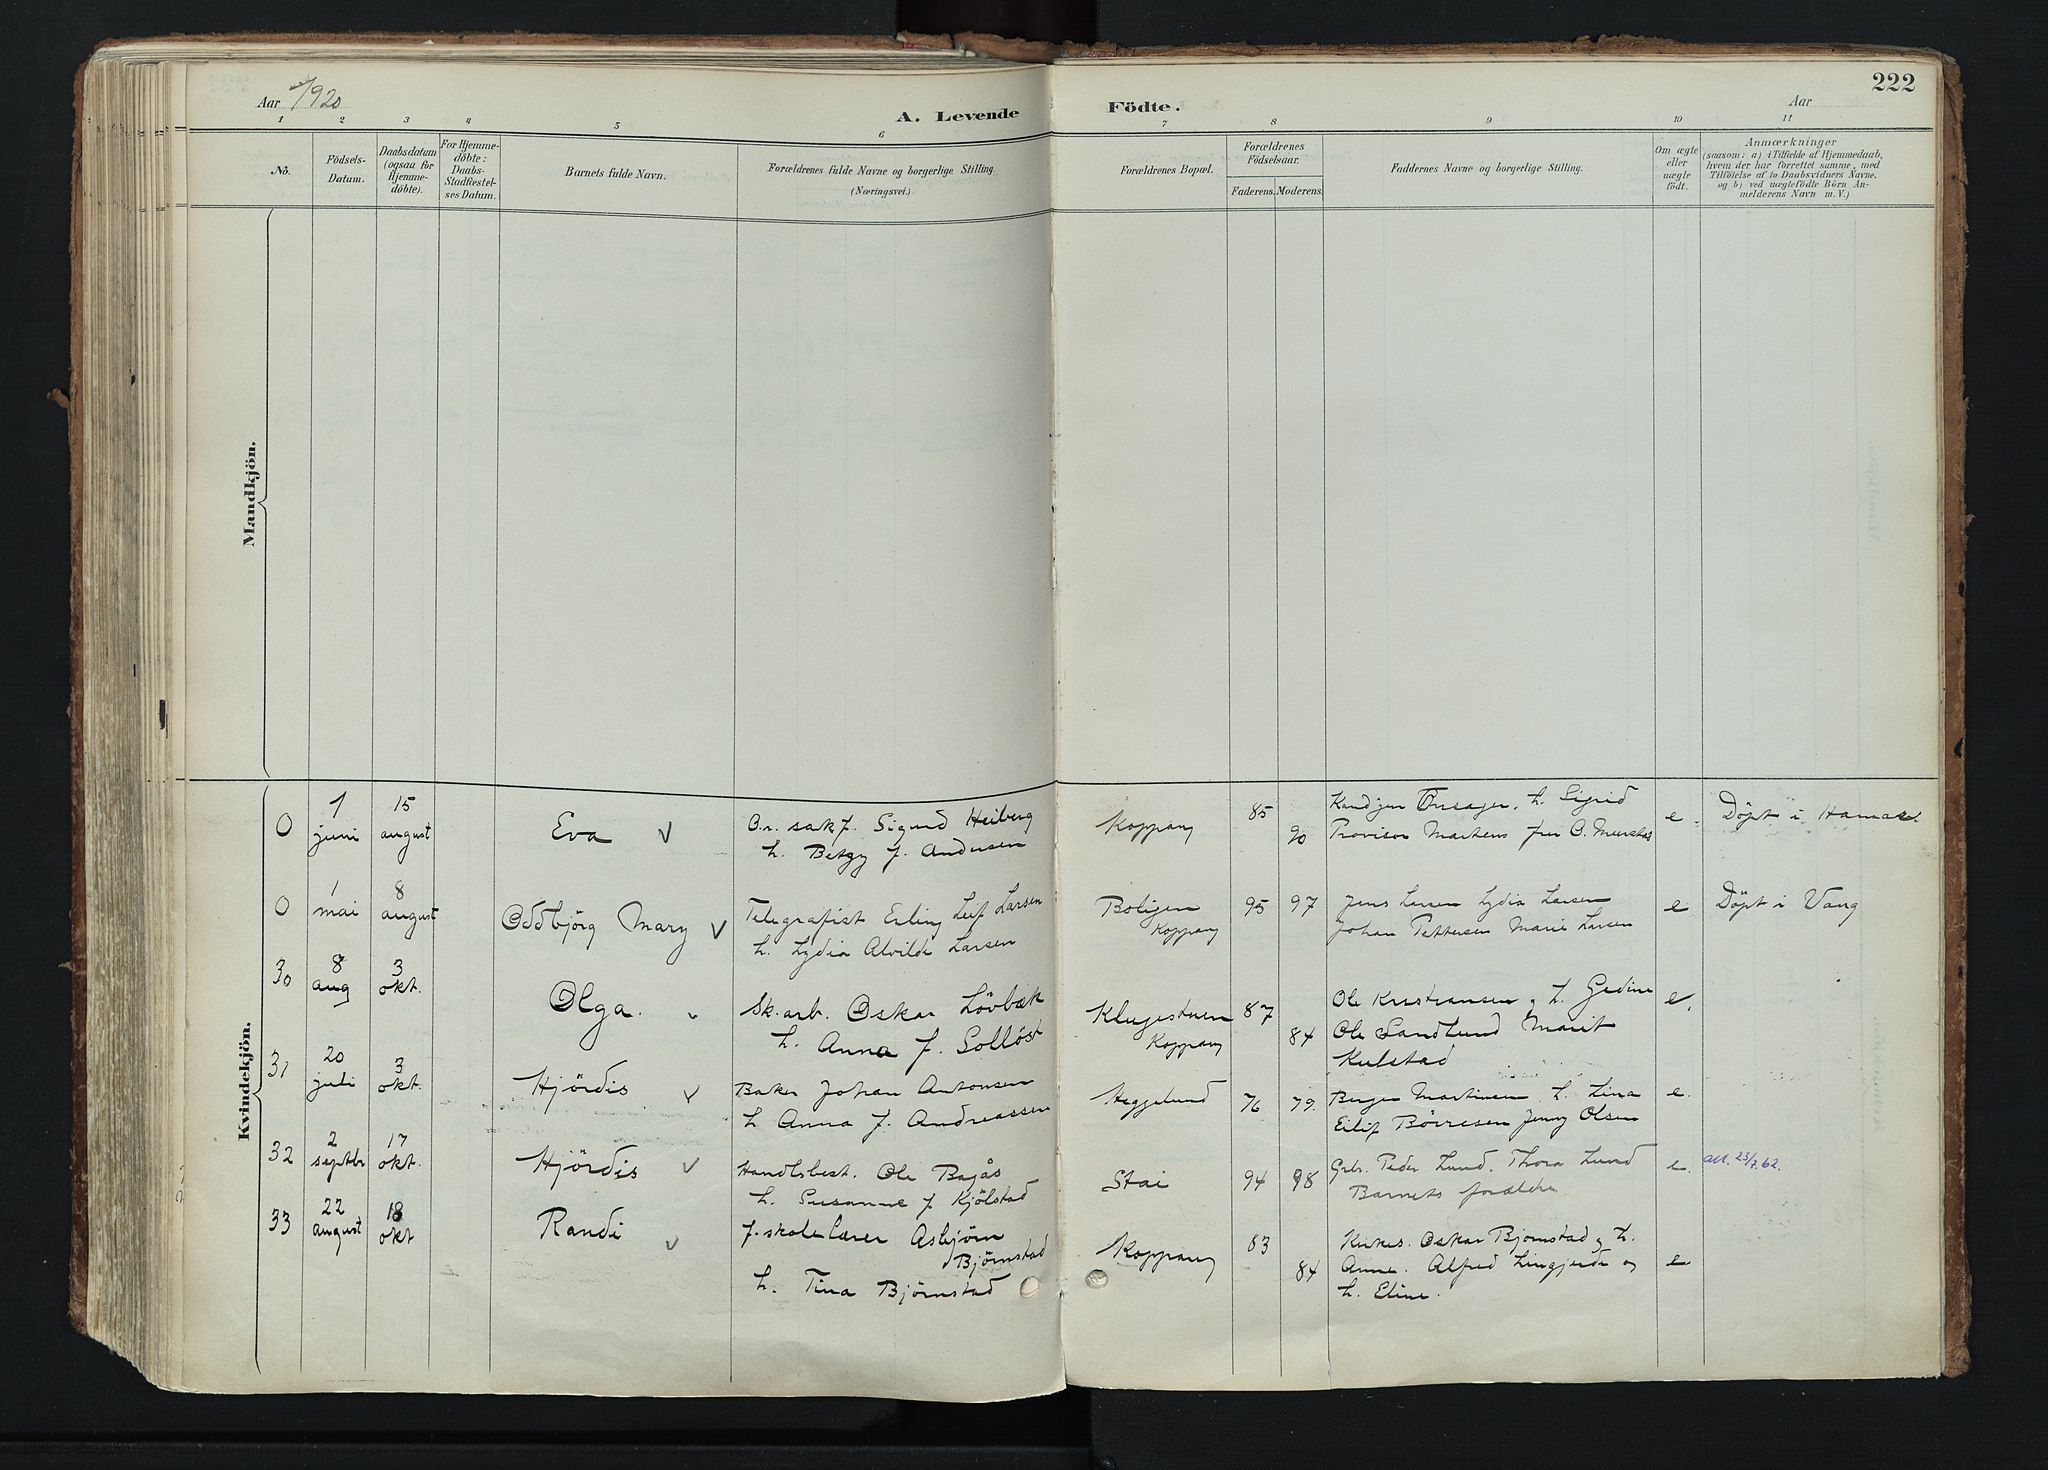 222
Aar 1920
A. Levende
Födte.
Aar
1 2 3 4 5 6 7 8 9 10 11
No.
Födsels-
Datum.
Daabsdatum
(ogsaa for
Hjemme-
döbte).
For Hjemme-
döbte:
Daabs-
Stadfæstel-
ses Datum.
Barnets fulde Navn.
Forældrenes fulde Navne og borgerlige Stilling.
(Næringsvei.)
Forældrenes Bopæl.
Forældrenes
Födselsaar.
Faderens. Moderens.
Faddernes Navne og borgerlige Stilling.
Om ægte
eller
uægte
födt.
Anmærkninger
(saasom: a) i Tilfælde af Hjemmedaab,
hvem der har forrettet samme, med
Tilföielse af to Daabsvidners Navne,
og b) ved uægtefödte Börn An-
melderens Navn m. V.)
Mandkjön.
Kvindekjön.
0
1
juni
15
august
Eva
O.r. sakf. Sigurd Heiberg
h. Betzy f. Andersen
Koppang
85
90
h. Sigrid
Provisor Martens
e.
Döpt i Hamar.
0
1
mai
8
august
Oddbjörg Mary
Telegrafist Erling Leif Larsen
h. Lydia Alvilde Larsen
Boligen
Koppang
95
97
Jens Larsen Lydia Larsen
Johan Pettersen Marie Larsen
e
Döpt i Vang
30
8
aug
3
okt.
Olga.
Sk. arb. Oskar Lövbæk
h. Anna f. Solløst
Klugestuen
Koppang
87
84
Ole Kristiansen og h. Gedine
Ole Sandlund Marit
Kulstad
e.
31
20
juli
3
okt.
Hjördis
Baker Johan Antonsen
h Anna f. Andreassen
Heggelund
76
79.
Berger Martinsen h. Lina
Eilif Börresen Jenny Olsen
e.
32
2
septbr
17
okt.
Hjördis
Handlsbest. Ole Bagås
h. Susanne f Kjölstad
Stai
94
98
Grbr. Peder Lund. Thora Lund
Barnets forældre
e.
att. 23/7.62.
33
22
august
18
okt
Randi
f. skolelærer Asbjörn
Björnstad
h. Tina Björnstad
Koppang
83
84
Kirkes. Oskar Bjørnstad og h.
Anne. Alfred Lingjerde og
h. Eline.
e